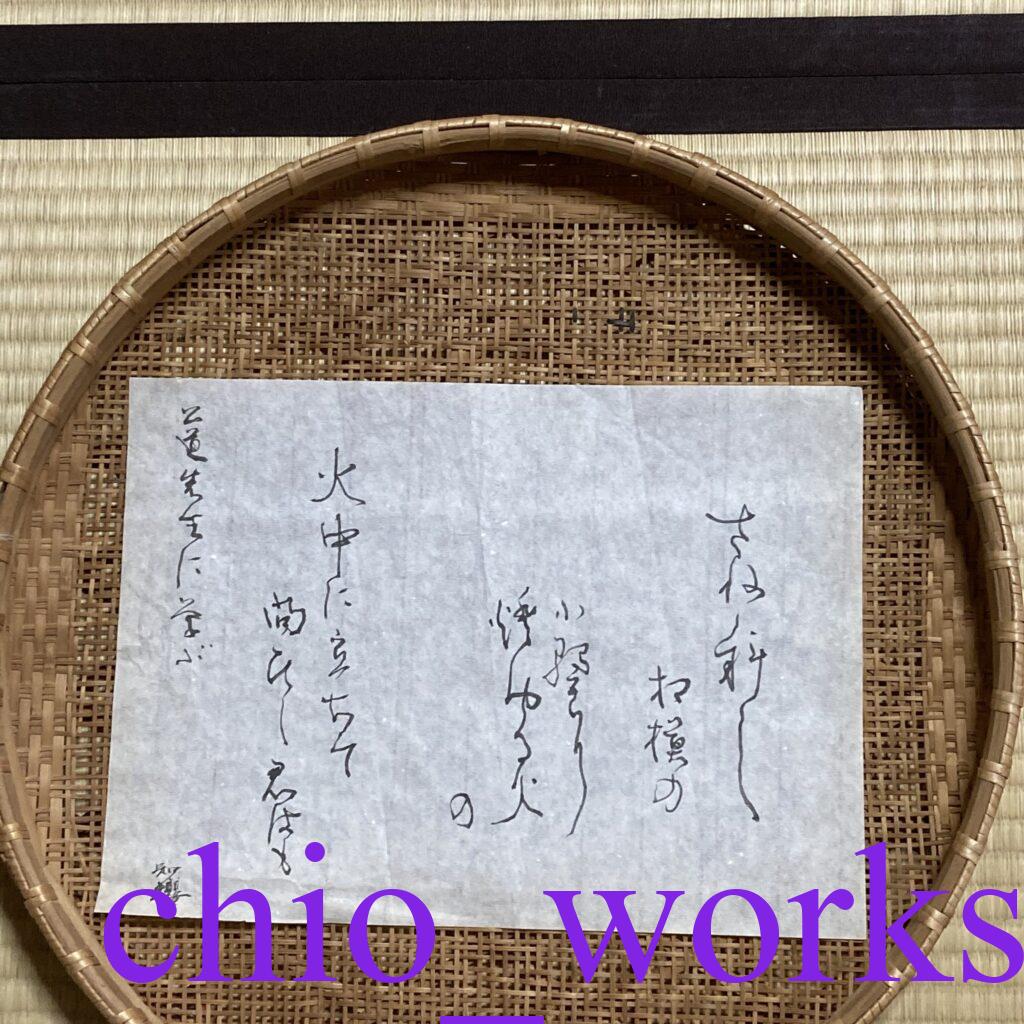 さね し
相模の
小野
燃ゆる火
の
火中に立ちて
問ひし君はも
公道先生に学ぶ
chio_works